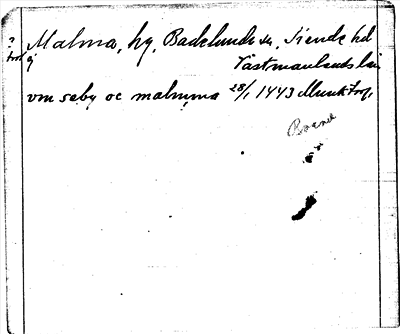 ? Malma, by, Badelunda sn, Siende hd
Västmanlands län
vm sæby oc malmma 28/1 1443 Munktorp.